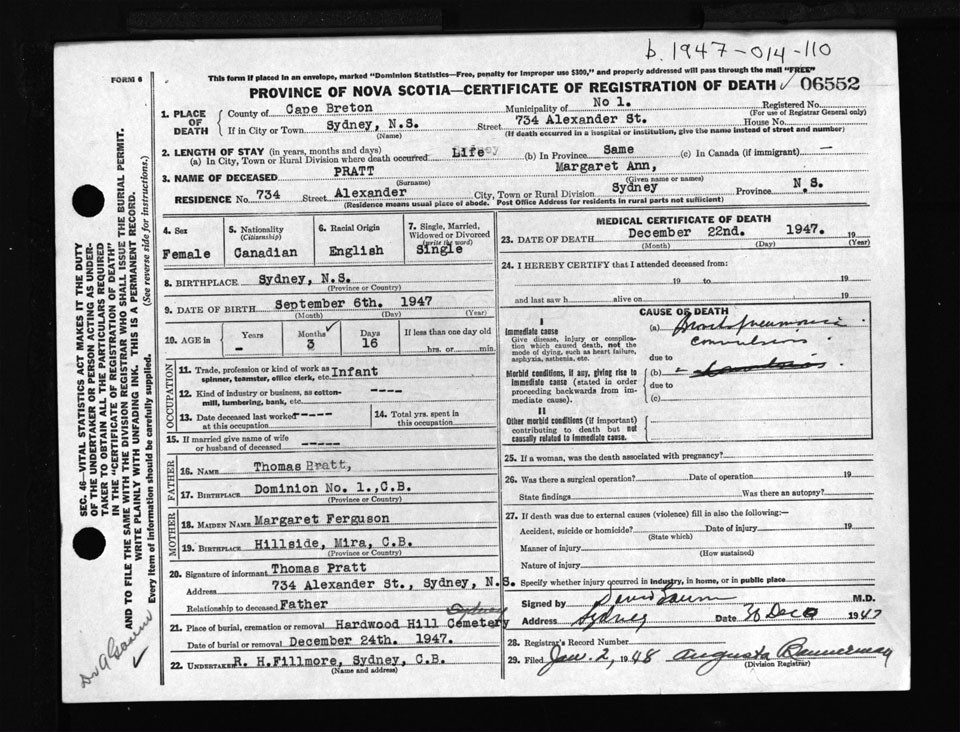 b. 1947-014-110
FORM 6
This form if placed in an envelope, marked "Dominion Statistics—Free, penalty for improper use $300," and properly addressed will pass through the mail "FREE"
PROVINCE OF NOVA SCOTIA—CERTIFICATE OF REGISTRATION OF DEATH 06552
1. PLACE OF DEATH
County of Cape Breton Municipality of No 1. Registered No.
(For use of Registrar General only)
If in City or Town Sydney, N.S. Street 734 Alexander St. House No.
(Name) (If death occurred in a hospital or institution, give the name instead of street and number)
2. LENGTH OF STAY (in years, months and days)
(a) In City, Town or Rural Division where death occurred Life (b) In Province Same (c) In Canada (if immigrant) —
3. NAME OF DECEASED PRATT Margaret Ann,
(Surname) (Given name or names)
RESIDENCE No. 734 Street Alexander City, Town or Rural Division Sydney Province N.S.
(Residence means usual place of abode. Post Office Address for residents in rural parts not sufficient)
4. Sex
Female
5. Nationality
(Citizenship)
Canadian
6. Racial Origin
English
7. Single, Married, Widowed or Divorced
(write the word)
Single
8. BIRTHPLACE Sydney, N.S.
(Province or Country)
9. DATE OF BIRTH September 6th. 1947
(Month) (Day) (Year)
10. AGE in
Years Months Days If less than one day old
- 3 16 hrs. or min.
OCCUPATION
11. Trade, profession or kind of work as spinner, teamster, office clerk, etc. Infant
12. Kind of industry or business, as cotton-mill, lumbering, bank, etc. ----
13. Date deceased last worked at this occupation -----
14. Total yrs. spent in this occupation
15. If married give name of wife or husband of deceased -----
FATHER
16. NAME Thomas Pratt,
17. BIRTHPLACE Dominion No. 1.,C.B.
(Province or Country)
MOTHER
18. MAIDEN NAME Margaret Ferguson
19. BIRTHPLACE Hillside, Mira, C.B.
(Province or Country)
20. Signature of informant Thomas Pratt
Address 734 Alexander St., Sydney, N.S.
Relationship to deceased Father
Sydney
21. Place of burial, cremation or removal Hardwood Hill Cemetery
Date of burial or removal December 24th. 1947.
22. UNDERTAKER R. H.Fillmore, Sydney, C.B.
(Name and address)
MEDICAL CERTIFICATE OF DEATH
23. DATE OF DEATH December 22nd. 1947. 19
(Month) (Day) (Year)
24. I HEREBY CERTIFY that I attended deceased from:
19 to 19
and last saw h alive on 19
CAUSE OF DEATH
I
Immediate cause
Give disease, injury or complication which caused death, not the mode of dying, such as heart failure, asphyxia, asthenia, etc.
(a) Bronchopneumonia
convulsions
due to
Morbid conditions, if any, giving rise to immediate cause (stated in order proceeding backwards from immediate cause).
(b)
due to
(c)
II
Other morbid conditions (if important) contributing to death but not causally related to immediate cause.
25. If a woman, was the death associated with pregnancy?
26. Was there a surgical operation? Date of operation 19
State findings Was there an autopsy?
27. If death was due to external causes (violence) fill in also the following:—
Accident, suicide or homicide? Date of injury 19
(State which)
Manner of injury
(How sustained)
Nature of injury
Specify whether injury occurred in industry, in home, or in public place
Signed by David Gaum M.D.
Address Sydney Date 30 Dec 1947
28. Registrar's Record Number
29. Filed Jan. 2, 1948 Augusta Bannerman
(Division Registrar)
SEC. 46—VITAL STATISTICS ACT MAKES IT THE DUTY
OF THE UNDERTAKER OR PERSON ACTING AS UNDER-
TAKER TO OBTAIN ALL THE PARTICULARS REQUIRED
IN THE "CERTIFICATE OF REGISTRATION OF DEATH"
AND TO FILE THE SAME WITH THE DIVISION REGISTRAR WHO SHALL ISSUE THE BURIAL PERMIT.
WRITE PLAINLY WITH UNFADING INK. THIS IS A PERMANENT RECORD.
Every item of information should be carefully supplied. (See reverse side for instructions.)
Dr A Gaum